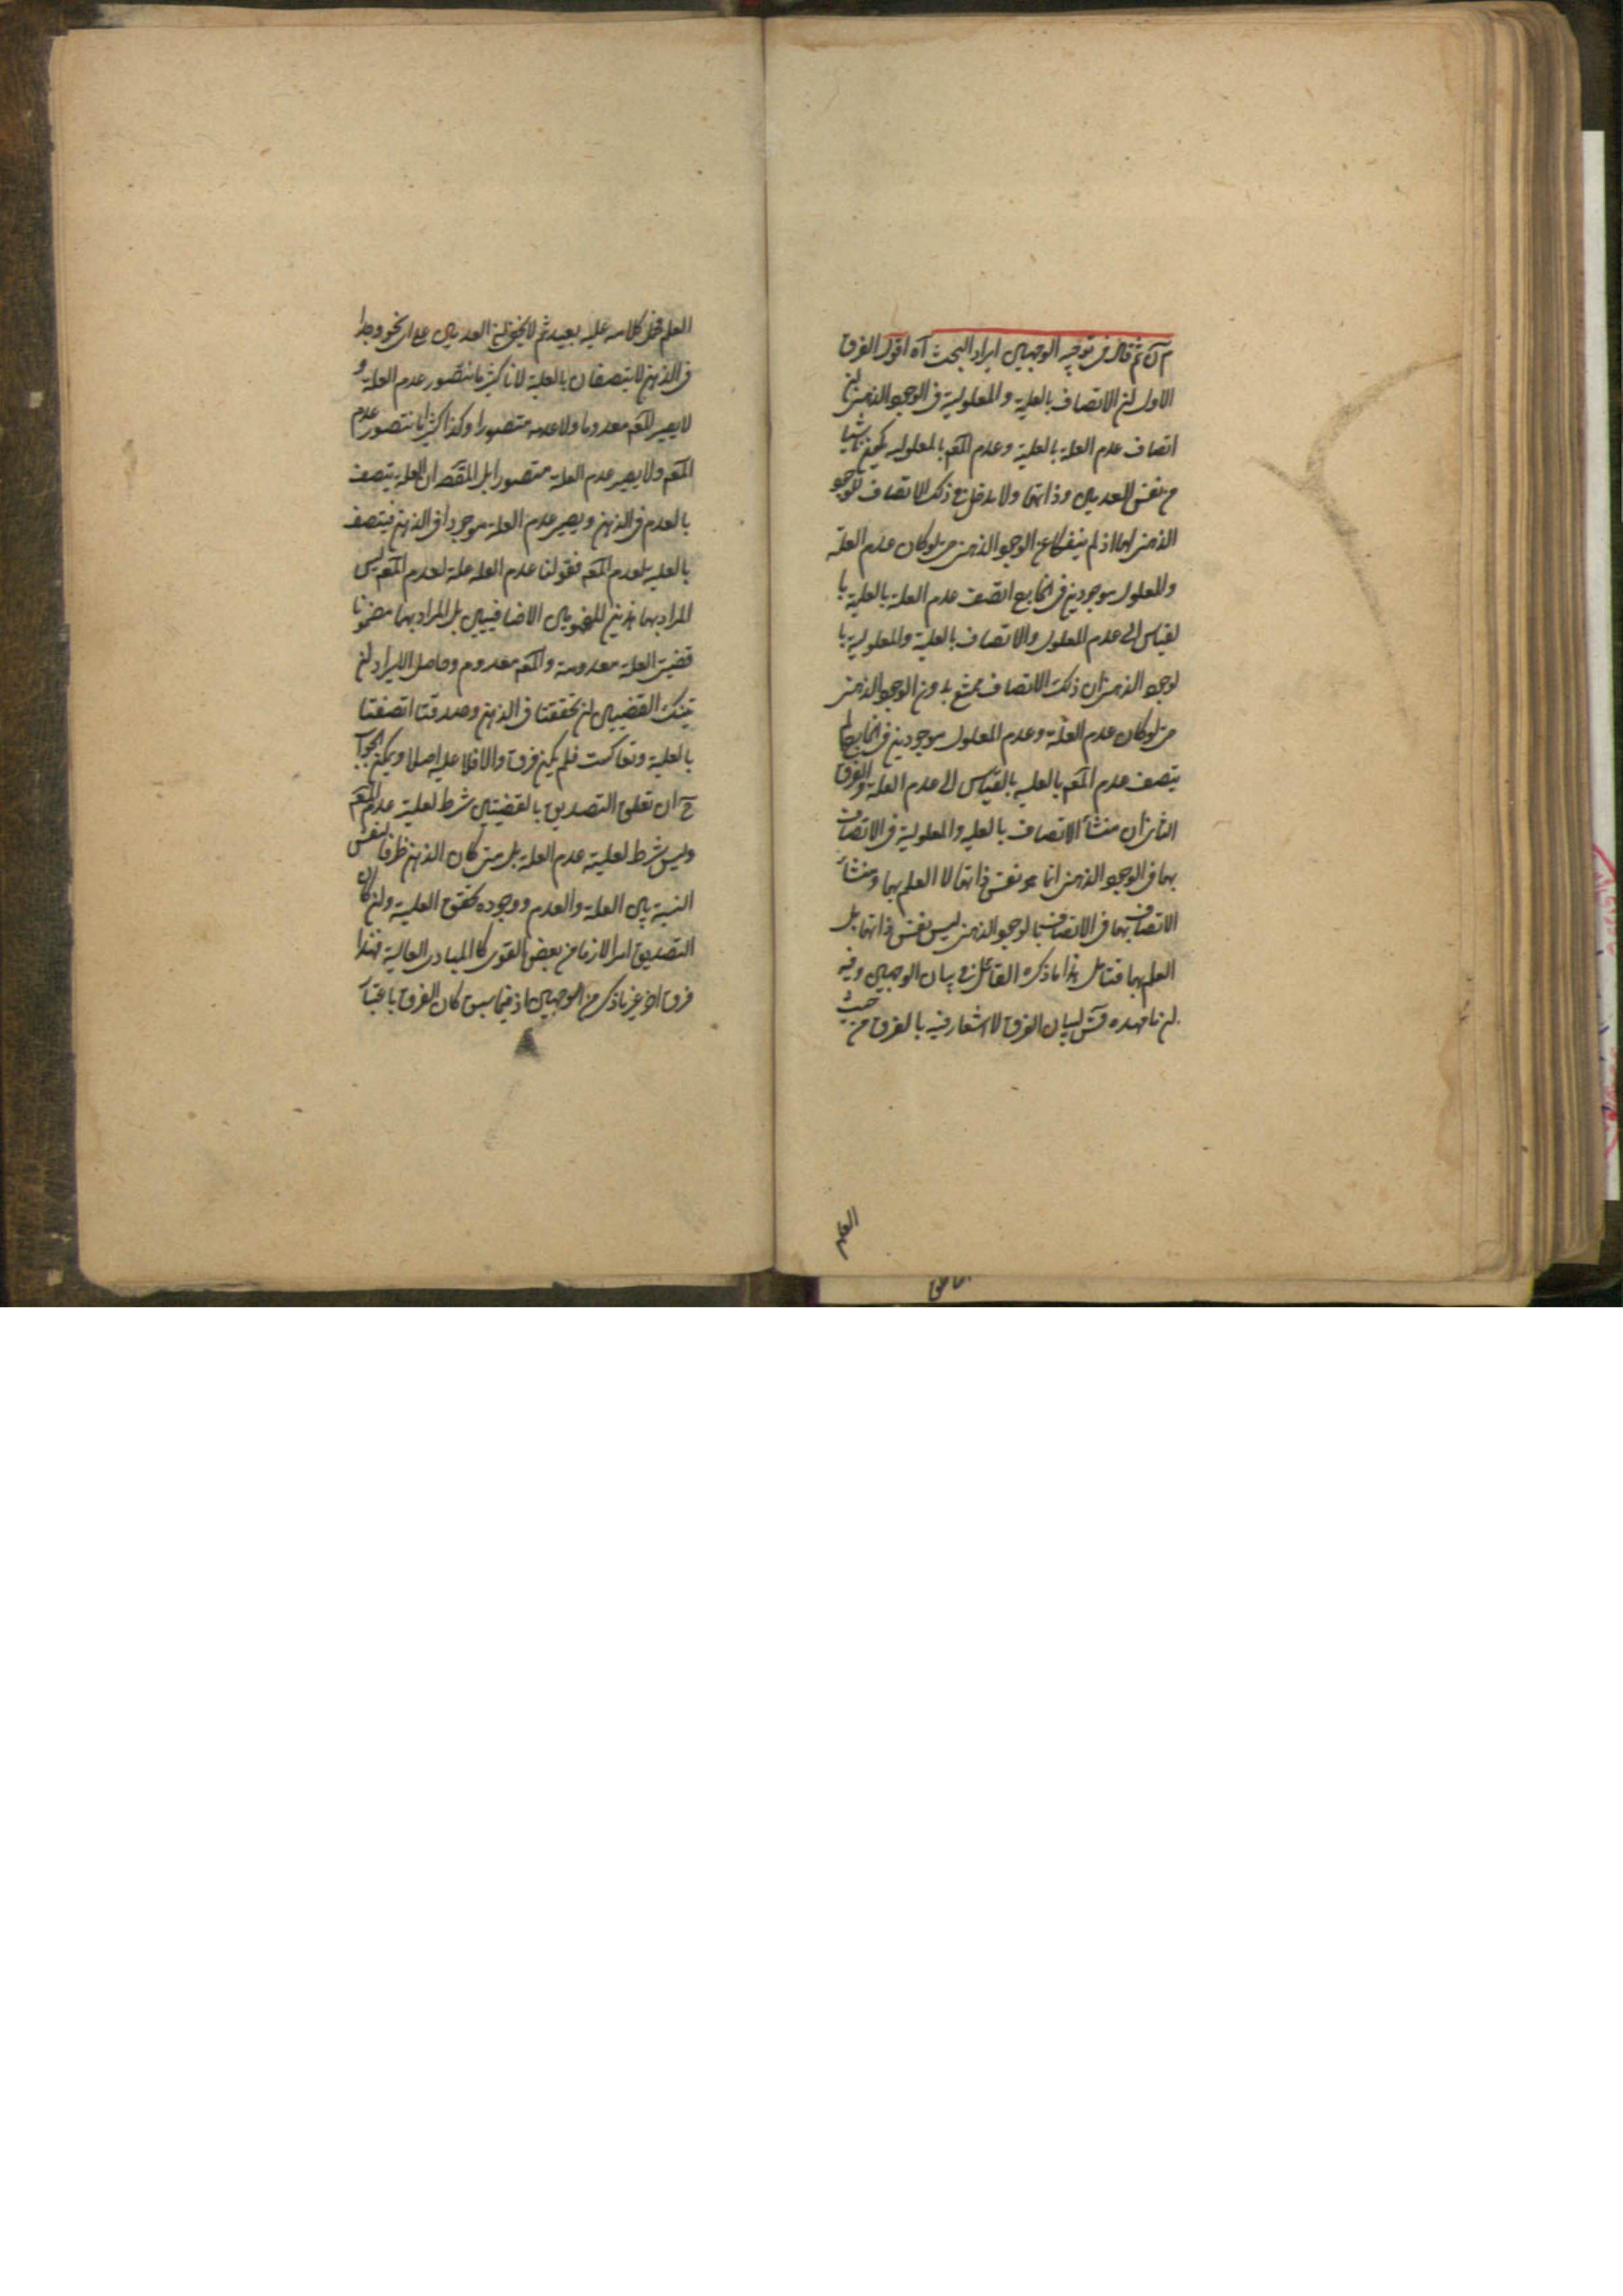 ثم قال في توجيه الوجهين ايراد البحث آه اقول الفرق
الاول ان الاتصاف بالعلية والمعلولية في الوجود الذهني ان
اتصاف عدم العلة بالعلية وعدم المعه بالمعلولية يكون ناشيا
من نفس العدمين وذاتهما ولا مدخل في ذلك الاتصاف للوجود
الذهني لهما اذ لم ينفكا عن الوجود الذهني حتى لو كان عدم العلة
والمعلول موجودين في الخارج اتصف عدم العلة بالعلية با
لقياس الى عدم المعلول والاتصاف بالعلية والمعلولية با
لوجود الذهني ان ذلك الاتصاف ممتنع بدون الوجود الذهني
حتى لو كان عدم العلة وعدم المعلول موجودين في الخارج لم
يتصف عدم المعه بالعلية بالقياس الى عدم العلة والفرق
الثاني ان منشأ الاتصاف بالعلية والمعلولية في الاتصاف
بهما في الوجود الذهني انما هو نفس ذاتهما لا العلم بهما ومنشأ
الاتصاف بهما في الاتصاف بالوجود الذهني ليس نفس ذاتهما بل
العلم بهما فتامل هذا ما ذكره القائل في بيان الوجهين وفيه
ان ما مهده لبيان الفرق لا اشعار فيه بالفرق من حيث
العلم
العلم فحمل كلامه عليه بعيد ثم لا يخفى ان العدمين على اي نحو وجدا
في الذهن لا يتصفان بالعلية لانا كثيرا ما نتصور عدم العلة و
لا يصير المعه معدوما ولا عدمه متصورا وكذا كثيرا ما نتصور عدم
المعه ولا يصير عدم العلة متصورا بل المقصه ان العلة يتصف
بالعدم في الذهن ويصير عدم العلة موجودا في الذهن فيتصف
بالعلية لعدم المعه فقولنا عدم العلة علة لعدم المعه ليس
المراد بهما هذين المفهومين الاضافيين بل المراد بهما مضمونا
قضيتي العلة معدومة والمعه معدوم وحاصل الايراد ان
تينك القضيتين ان تحققتا في الذهن وصدقتا اتصفتا
بالعلية وتعاكست فلم يكن فرق والا فلا علية اصلا ويمكن الجواب
ح ان تعلق التصديق بالقضيتين شرط لعلية عدم المعه
وليس شرط لعلية عدم العلة بل متى كان الذهن ظرفا لنفس
النسبة بين العلة والعدم ووجوده تحقق العلية وان كان
التصديق امرا لازما من بعض القوى كالمبادي العالية فهذا
فرق اخر غير ما ذكر من الوجهين اذ فيما سبق كان الفرق باعتبار